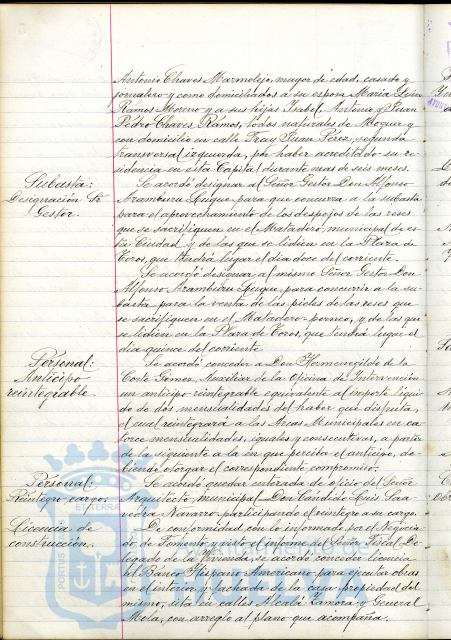 Antonio Chaves Marmolejo, mayor de edad, casado y
jornalero y como domiciliados a su esposa Maria Luisa
Ramos Moreno y a sus hijas Isabel, Antonio y Juan
Pedro Chaves Ramos, todos naturales de Moguer y
con domicilio en calle Fray Juan Pérez, segunda
transversal izquierda, por haber acreditado su re-
sidencia en esta Capital durante mas de seis meses.
Subasta:
Designación Sr.
Gestor.
Se acordó designar al Señor Gestor Don Alfonso
Aramburu Luque para que concurra a la subasta
para el aprovechamiento de los despojos de las reses
que se sacrifiquen en el Matadero municipal de es-
ta Ciudad y de las que se lidien en la Plaza de
Toros, que tendrá lugar el dia doce del corriente.
Se acordó designar al mismo Señor Gestor Don
Alfonso Aramburu Luque, para concurrir a la su-
basta para la venta de las pieles de las reses que
se sacrifiquen en el Matadero y de las que
se lidien en la Plaza de Toros, que tendrá lugar el
dia quince del corriente.
Personal:
Anticipo
reintegrable.
Se acordó conceder a Don Hermenegildo de la
Corte Gómez, Auxiliar de la Oficina de Intervención
un anticipo reintegrable equivalente al importe liqui-
do de dos mensualidades del haber que disfruta,
el cual reintegrará a las Arcas Municipales en ca-
torce mensualidades, iguales y consecutivas, a partir
de la siguiente a la en que perciba el anticipo, de-
biendo otorgar el correspondiente compromiso.
Personal:
Reintegro cargo.
Se acordó quedar enterada de oficio del Señor
Arquitecto municipal Don Candido Luis Saa-
vedra Navarro participando el reintegro a su cargo.
Licencia de
construcción.
De conformidad con lo informado por el Negocia-
do de Fomento y visto el informe del Señor Fiscal De-
legado de la Vivienda, se acordo conceder licencia
al Banco Hispano Americano para ejecutar obras
en el interior y fachada de la casa propiedad del
mismo, sita en calles Alcalá Zamora y General
Mola, con arreglo al plano que acompaña.
PORTUS
ET TERRA